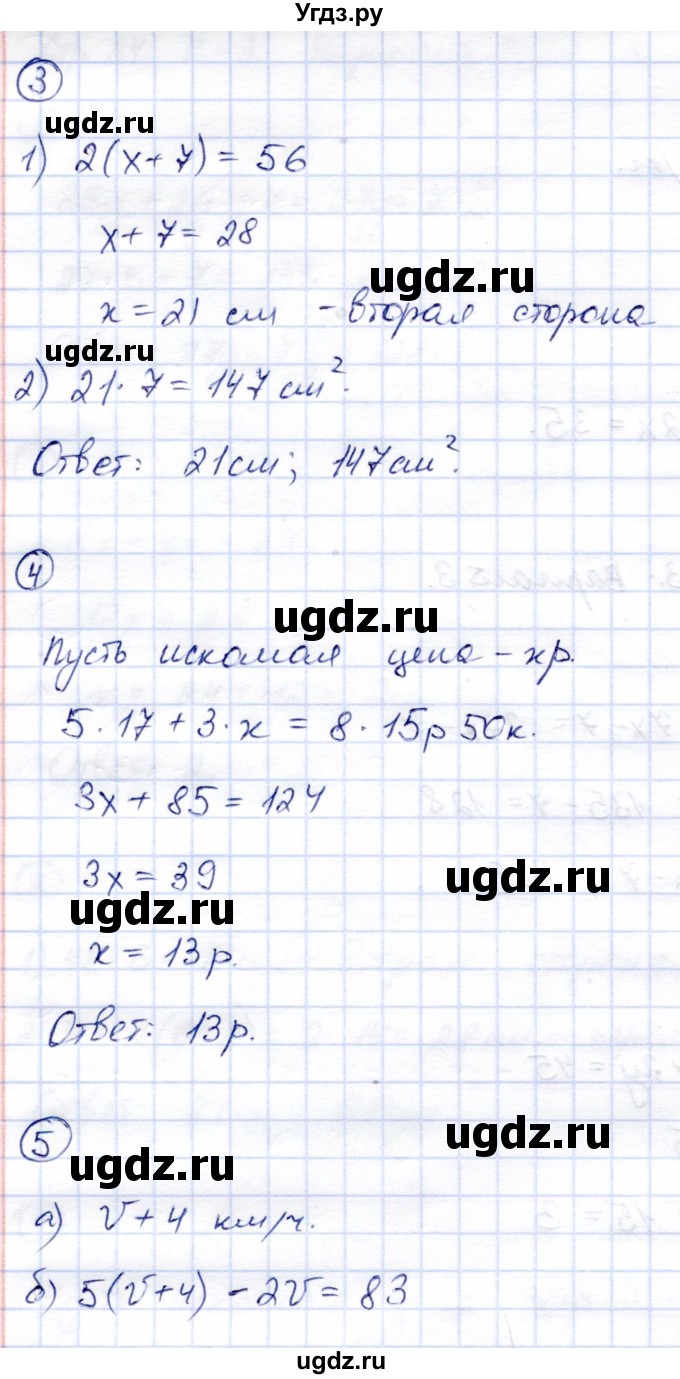 Угдз.ру
3
ugdz.ru
1) 2(x+7) = 56
x+7 = 28
ugdz.ru
x = 21 см - вторая сторона
ugdz.ru
2) 21·7 = 147 см².
Ответ: 21см; 147см².
4
ugdz.ru
Пусть искомая цена - xр.
5·17 + 3·x = 8·15р 50к.
3x + 85 = 124
3x = 39
ugdz.ru
ugdz.ru
x = 13р.
Ответ: 13р.
5
ugdz.ru
ugdz.ru
а) v+4 км/ч.
б) 5(v+4) - 2v = 83
ugdz.ru